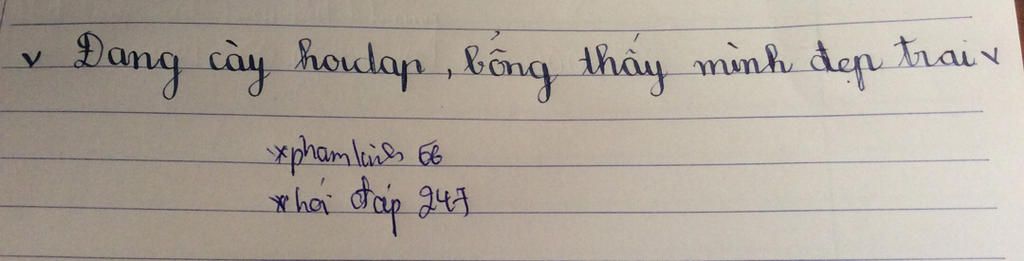 v Đang cày hoidap, bổng thấy mình đẹp trai v
*phamlinh 66
*hỏi đáp 247